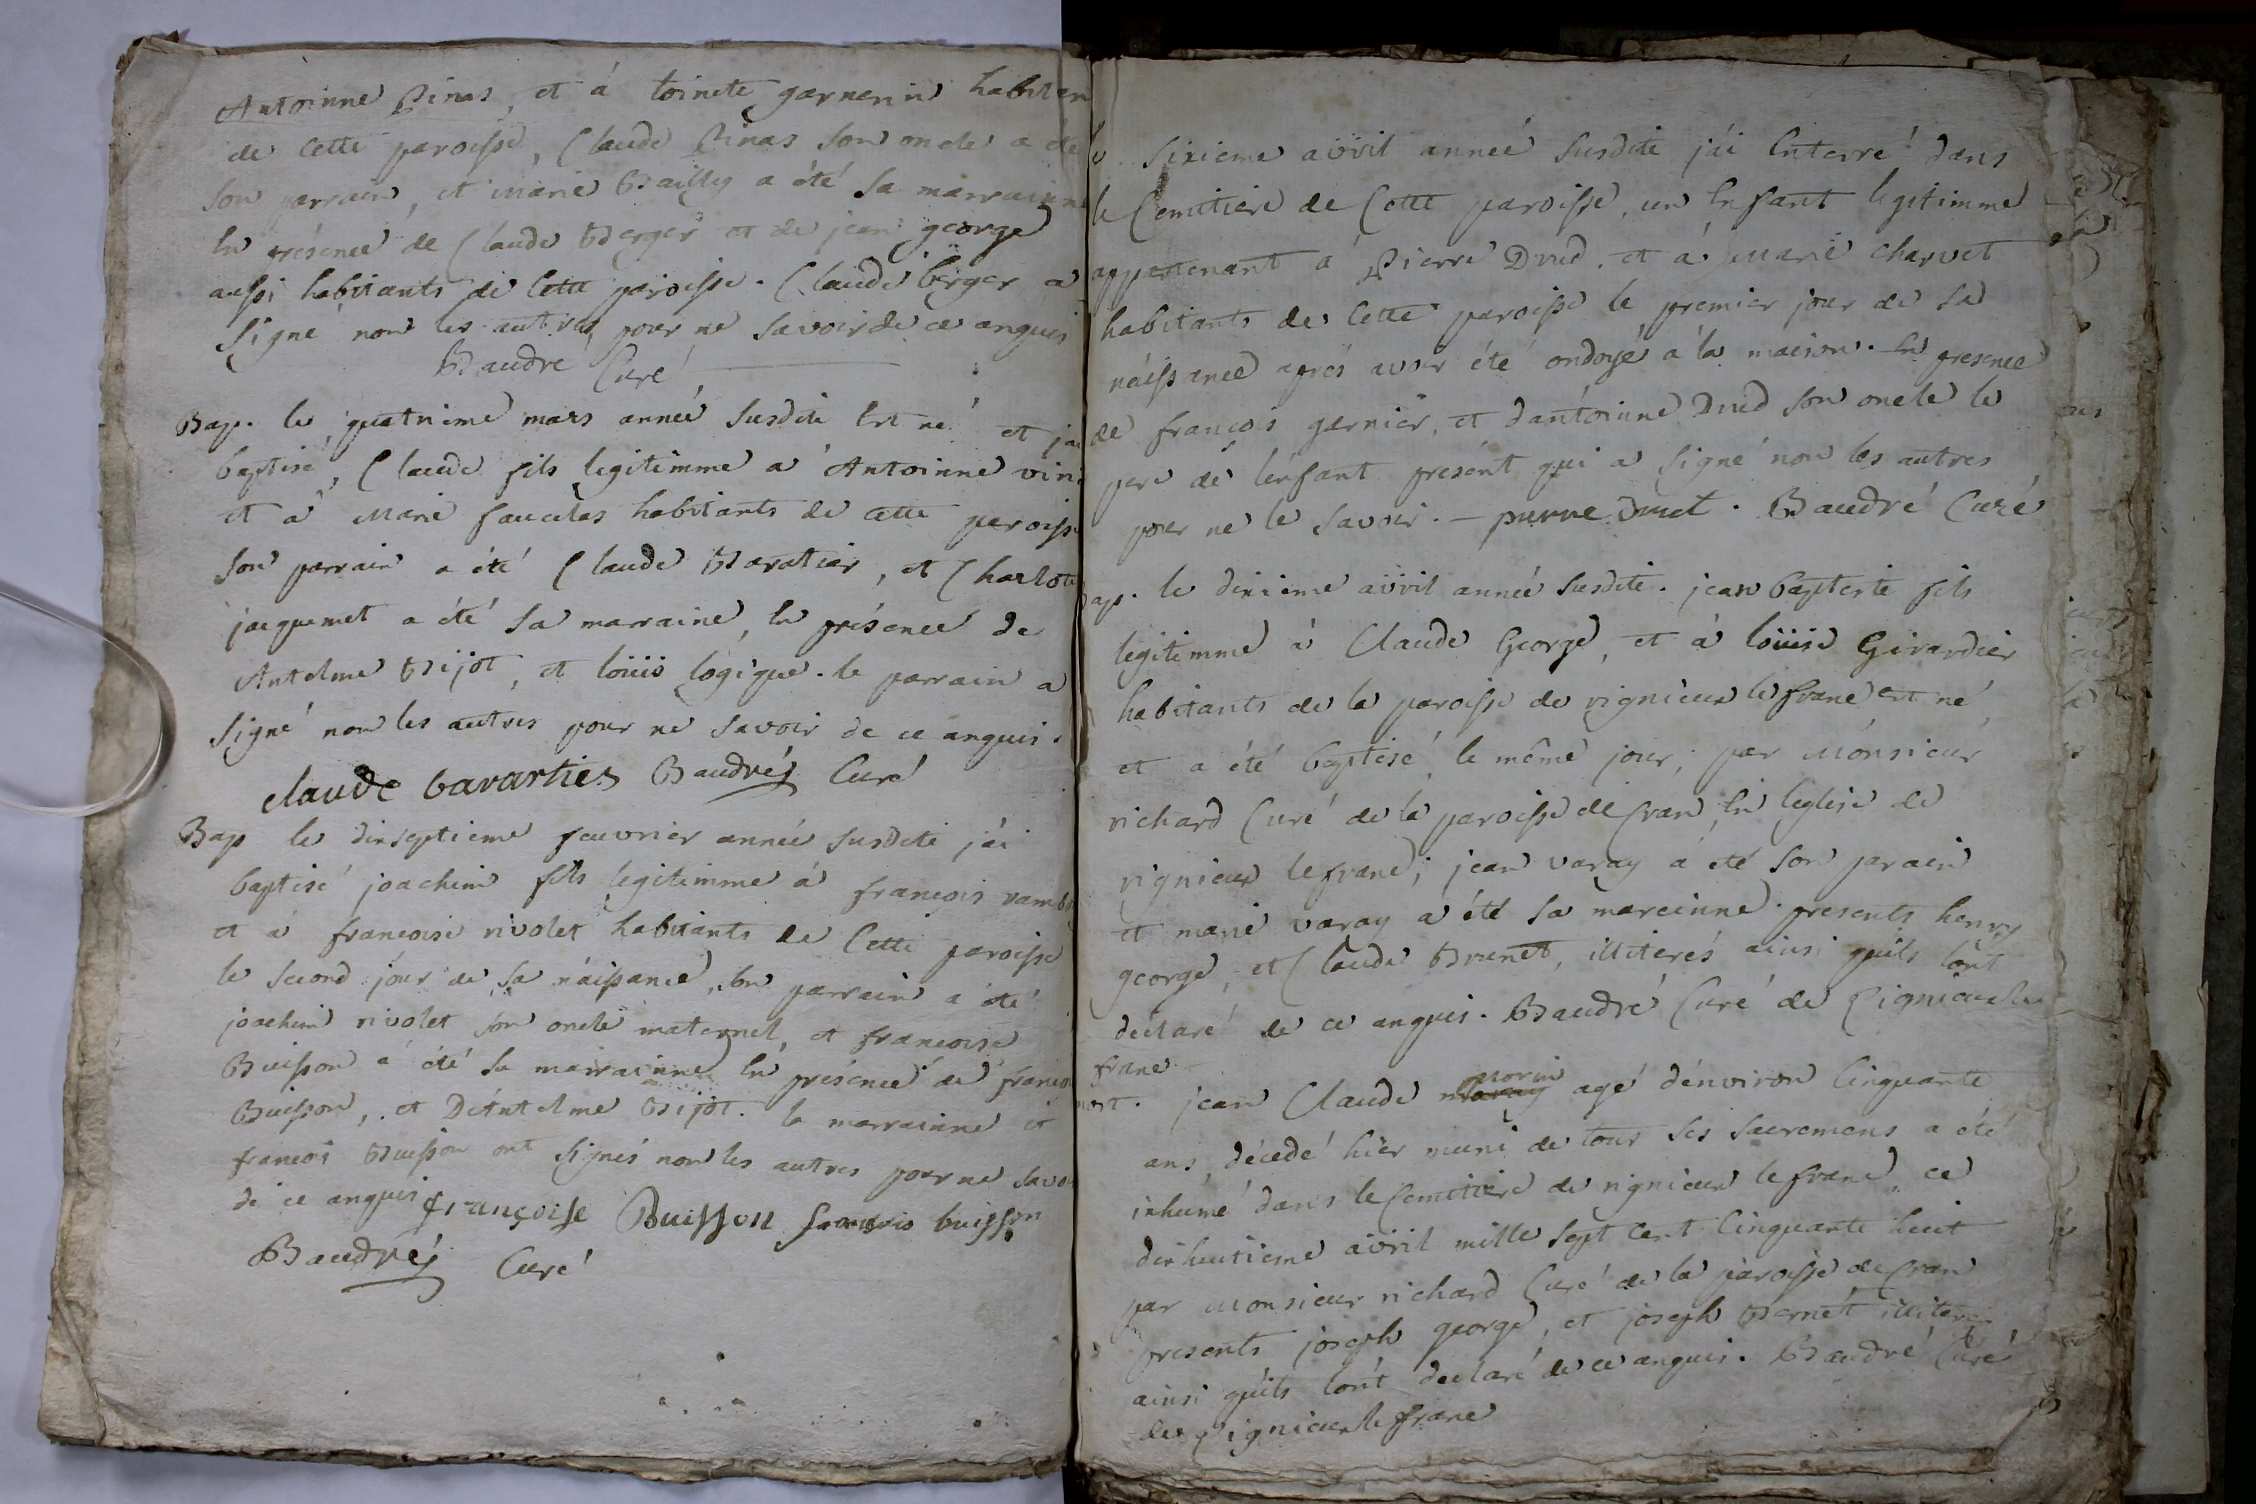 Antoinne Pinas, et á toinete garnerin habitan
de cette paroisse, Claude Pinas son oncle a été
son parrain, et marie Bailly a été sa marrainne
en présence de Claude Berger et de jean george
aussi habitants de cette paroisse. Claude berger a
signé non les autres pour ne savoir de ce anquis
Baudré Curé
Bap. le quatrieme mars année susdite est né et jai
baptisé, Claude fils legitimme a Antoinne
et a marie habitants de cette paroisse
son parrain a été Claude Baratier, et Charlote
jacquemet a été sa marraine, en présence de
Antelme Bijot, et loüis logique. le parrain a
signé non les autres pour ne savoir de ce anquis.
claude bavarties Baudré Curé
Bap le dixseptieme feuvrier année susdite j'ái
baptisé joachim fils légitimme á françois
et á francoise rivolet habitants de Cette paroisse
le second jour de sa náissance, son parrain a été
joachim rivolet son oncle maternel, et francoise
Buisson a été sa marrainne en présence de françois
Buisson, et D'Antelme Bijot. la marrainne et
francois Buisson ont signés non les autres pour ne savoir
de ce anquis françoise Buisson francois buisson
Baudré Curé
le sixieme avvril année susdite j'ái enterré dans
le Cemitiere de Cette paroisse, un enfant legitimme
appartenant á Pierre Drud, et á Marie Charvet
habitants de Cette paroisse le premier jour de sa
náissance aprés avoir été ondoyé á la maison. En presence
de françois garnier, et dantoinne Drud son oncle le
pere de lenfant présent qui a signé non les autres
pour ne le savoir. – pierre druet. Baudré Curé
Bap. le dixieme avvril année susdite. jean baptiste fils
legitimme á Claude George, et á loüise Girardier
habitants de la paroisse de rignieux le franc est né,
et a été baptisé le même jour, par Monsieur
richard Curé de la paroisse de Cran, en leglise de
rignieux le franc; jean varay á été son parain
et marie varay a été sa marainne. presents henry
george, et Claude Brunet, illiterés ainsi quils lont
déclaré de ce anquis. Baudré Curé de Rignieux le
franc
mort. jean Claude morin agé dénviron Cinquante
ans, décedé hier muni de tous ses sacremens a été
inhumé dans le Cemitiere de rignieux le franc, ce
dix huitieme avvril mille sept cent Cinquante huit
par Monsieur richard Curé de la paroisse de Cran
presents joseph george, et joseph Bernét illiteres
ainsi quils lont declaré de ce anquis. Baudré Curé
de Rignieux le franc